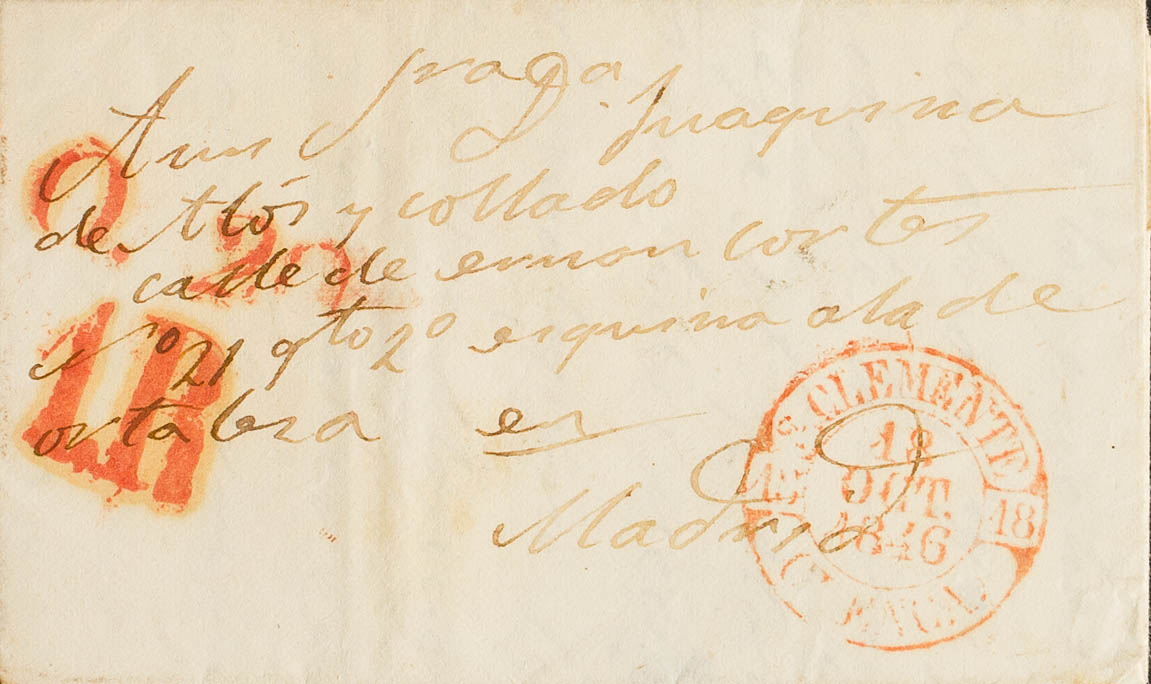 A mi Sra Da
Da. Juaquina
de Alós y collado
calle de ernan cortes
No 21 qto 2o esquina ala de
ortaleza en
Madrid
1R
S. CLEMENTE
18
OCT.
1846
18
CUENCA.